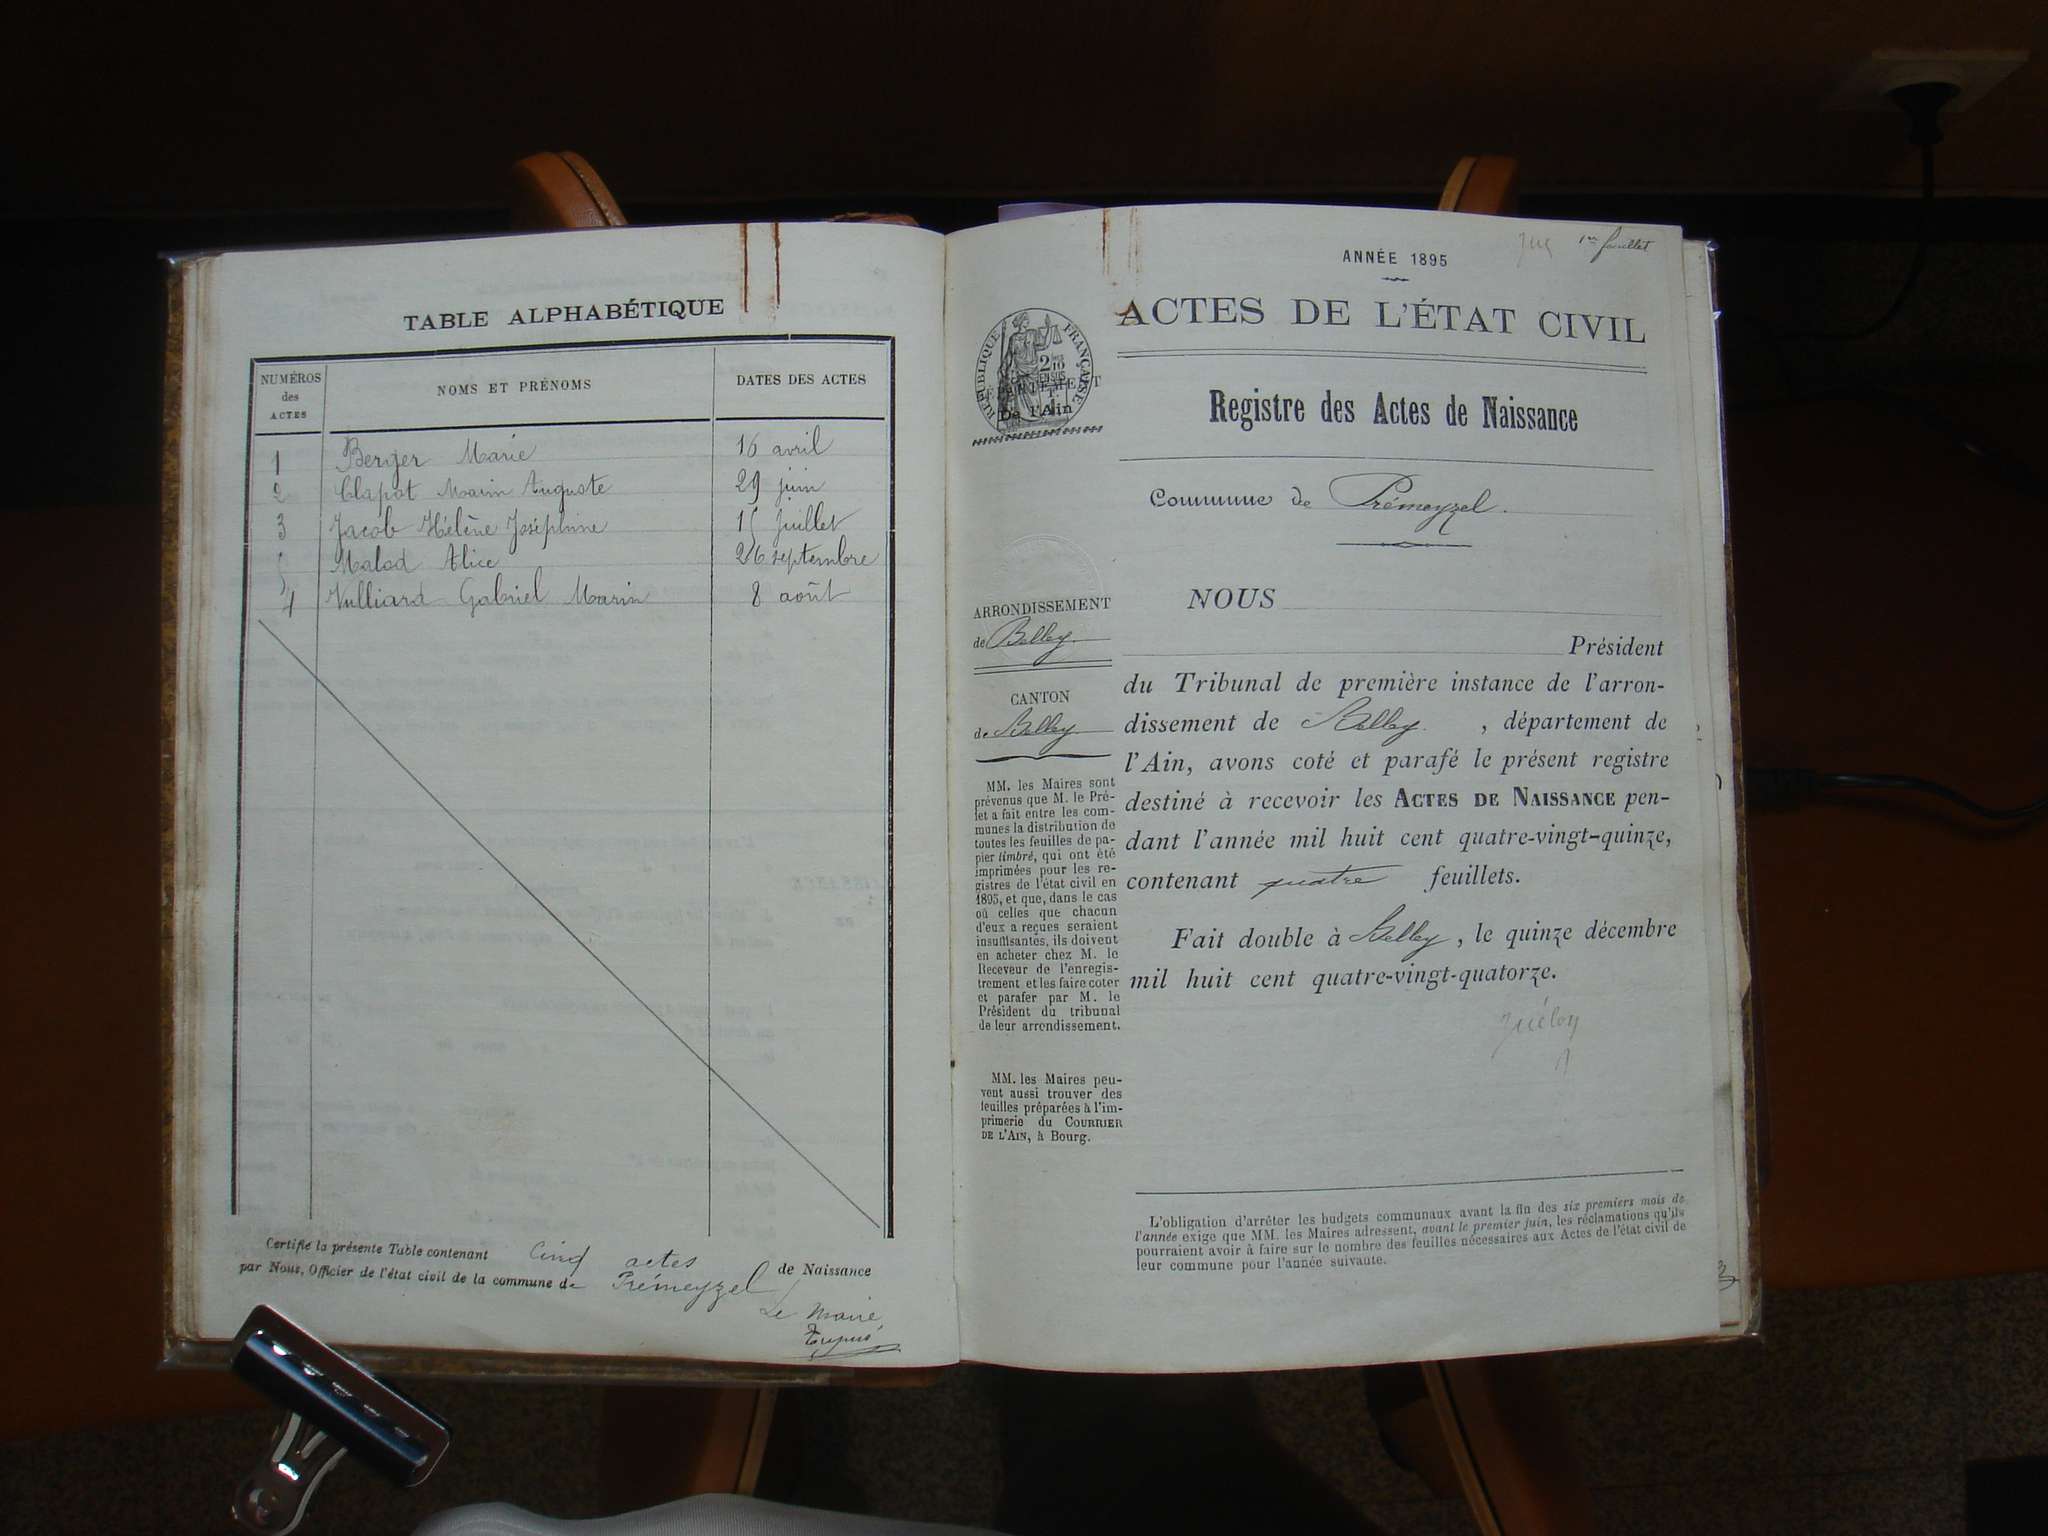 TABLE ALPHABÉTIQUE
NUMÉROS
des
ACTES
NOMS ET PRÉNOMS
DATES DES ACTES
1 Berger Marie 16 avril
2 Clapot Marin Auguste 29 juin
3 Jacob Hélène Joséphine 15 juillet
5 Malod Alice 26 septembre
4 Vulliard Gabriel Marin 8 août
Certifié la présente Table contenant Cinq actes de Naissance
par Nous, Officier de l'état civil de la commune de Prémeyzel
Le Maire
1er feuillet
ANNÉE 1895
ACTES DE L'ÉTAT CIVIL
RÉPUBLIQUE FRANÇAISE
2
10
De l'Ain
Registre des Actes de Naissance
Commune de Prémeyzel.
ARRONDISSEMENT
de Belley
CANTON
de Belley
MM. les Maires sont
prévenus que M. le Pré-
fet a fait entre les com-
munes la distribution de
toutes les feuilles de pa-
pier timbré, qui ont été
imprimées pour les re-
gistres de l'état civil en
1895, et que, dans le cas
où celles que chacun
d'eux a reçues seraient
insuffisantes, ils doivent
en acheter chez M. le
Receveur de l'enregis-
trement et les faire coter
et parafer par M. le
Président du tribunal
de leur arrondissement.
MM. les Maires peu-
vent aussi trouver des
feuilles préparées à l'im-
primerie du COURRIER
DE L'AIN, à Bourg.
NOUS
Président
du Tribunal de première instance de l'arron-
dissement de Belley, département de
l'Ain, avons coté et parafé le présent registre
destiné à recevoir les ACTES DE NAISSANCE pen-
dant l'année mil huit cent quatre-vingt-quinze,
contenant quatre feuillets.
Fait double à Belley, le quinze décembre
mil huit cent quatre-vingt-quatorze.
L'obligation d'arrêter les budgets communaux avant la fin des six premiers mois de
l'année exige que MM. les Maires adressent, avant le premier juin, les réclamations qu'ils
pourraient avoir à faire sur le nombre des feuilles nécessaires aux Actes de l'état civil de
leur commune pour l'année suivante.